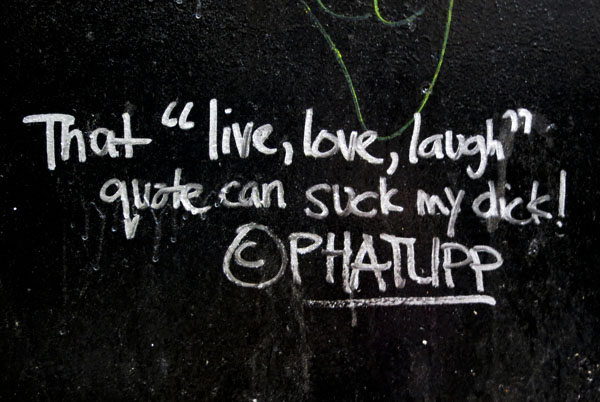 That “live, love, laugh”
quote can suck my dick!
©PHATLIPP